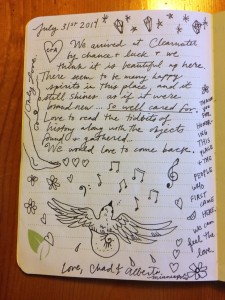 July 31st 2017
We arrived at Clearwater
by chance & luck & we
think it is beautiful up here.
There seem to be many happy
spirits in this place, and it
still shines as if it were
brand new... So well cared for.
Love to read the tidbits of
history along with the objects
found & gathered...
We would love to come back.
Love, Chad & Alberta
Minneapolis
THANK
YOU
FOR
HONOR-
ING
THIS
PLACE
& THE
PEOPLE
WHO
FIRST
CAME
HERE.
WE CAN
feel the
love.